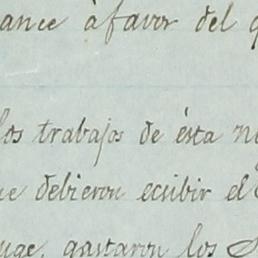 ance à favor del
los trabajos de ésta
debieron ecsibir el
gastaron los